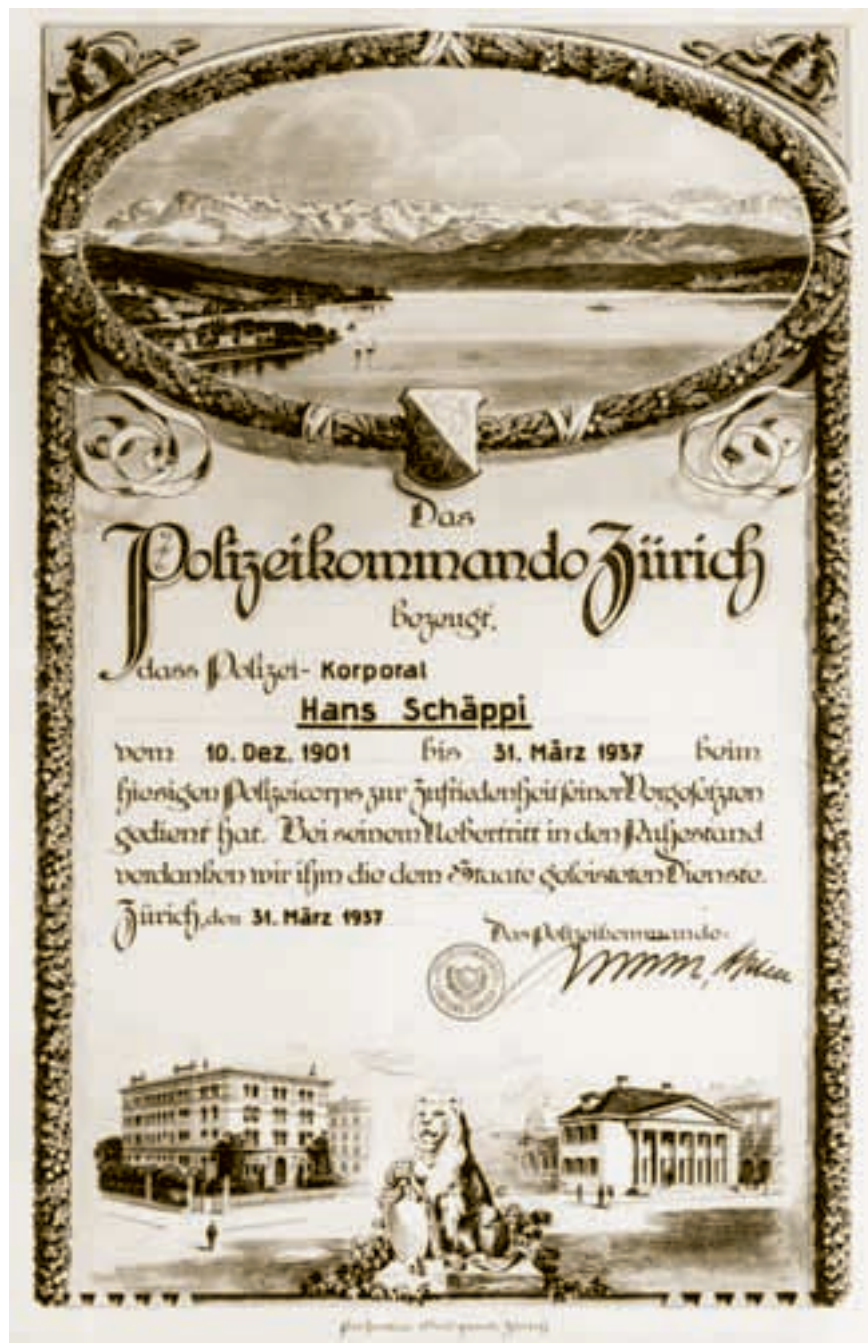 Das
Polizeikommando Zürich
bezeugt,
dass Polizei- Korporal
Hans Schäppi
vom 10. Dez. 1901 bis 31. März 1937 beim
hiesigen Polizeicorps zur Zufriedenheit seiner Vorgesetzten
gedient hat. Bei seinem Uebertritt in den Ruhestand
verdanken wir ihm die dem Staate geleisteten Dienste.
Zürich, den 31. März 1937
Das Polizeikommando: